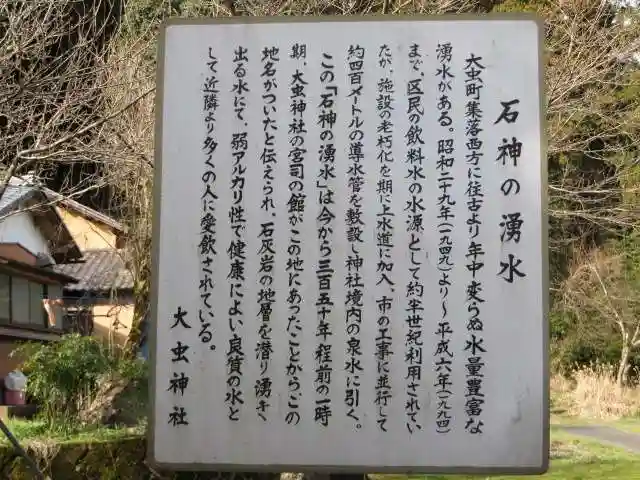 石神の湧水
大虫町集落西方に往古より年中変らぬ水量豊富な
湧水がある。昭和二十九年(一九四九)より〜平成六年(一九九四)
まで、区民の飲料水の水源として約半世紀利用されてい
たが、施設の老朽化を期に上水道に加入、市の工事に並行して
約四百メートルの導水管を敷設し神社境内の泉水に引く。
この「石神の湧水」は今から三百五十年程前の一時
期、大虫神社の宮司の館がこの地にあったことからこの
地名がついたと伝えられ、石灰岩の地層を潜り湧き
出る水にて、弱アルカリ性で健康によい良質の水と
して近隣より多くの人に愛飲されている。
大虫神社